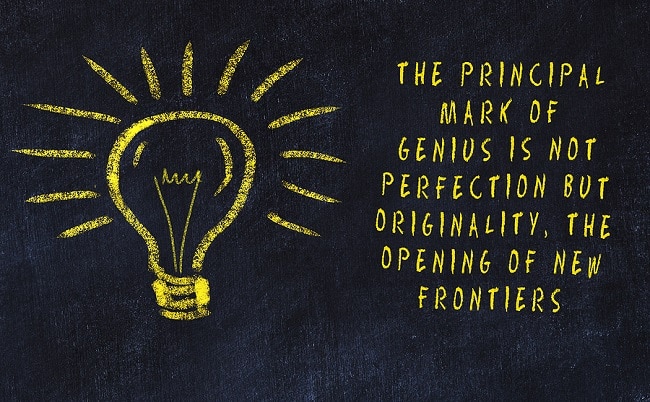 THE PRINCIPAL
MARK OF
GENIUS IS NOT
PERFECTION BUT
ORIGINALITY, THE
OPENING OF NEW
FRONTIERS